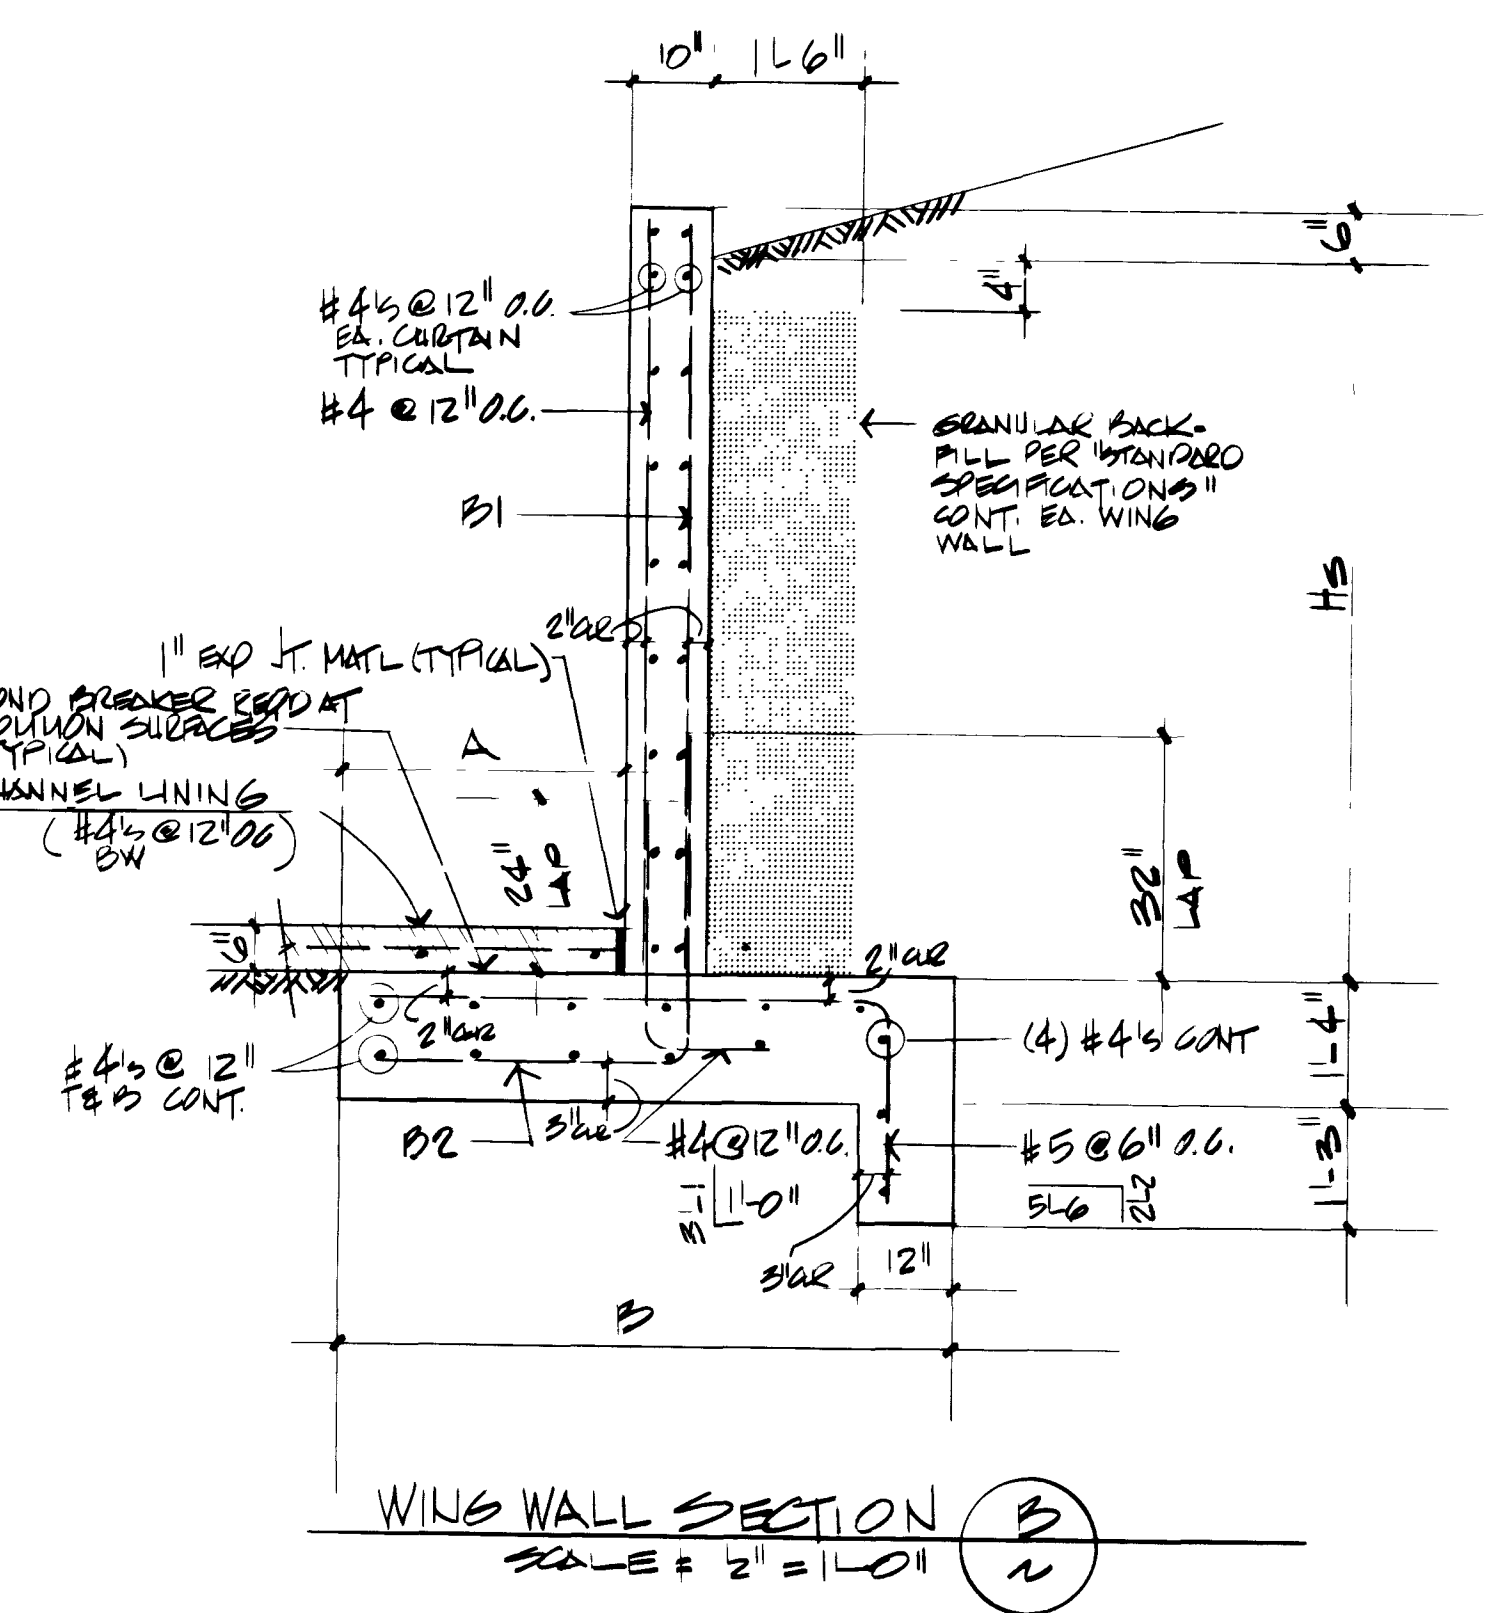 10" 1'-6"
6"
4"
#4's @ 12" O.C.
EA. CURTAIN
TYPICAL
#4 @ 12" O.C.
GRANULAR BACK-
FILL PER "STANDARD
SPECIFICATIONS"
CONT. EA. WING
WALL
B1
HS
2" CLR
1" EXP JT. MATL (TYPICAL)
OND BREAKER REQD AT
OMMON SURFACES
YPICAL)
A
HANNEL LINING
(#4's @ 12" OC)
BW
24"
LAP
32"
LAP
6"
2" CLR
2" CLR
(4) #4's CONT
1'-4"
#4's @ 12"
T & B CONT.
B2
3" CLR
#4 @ 12" O.C.
#5 @ 6" O.C.
1'-3"
3'-1 1'-0"
5'-6 2'-2
3" CLR
12"
B
WING WALL SECTION
B
SCALE = ½" = 1'-0"
2